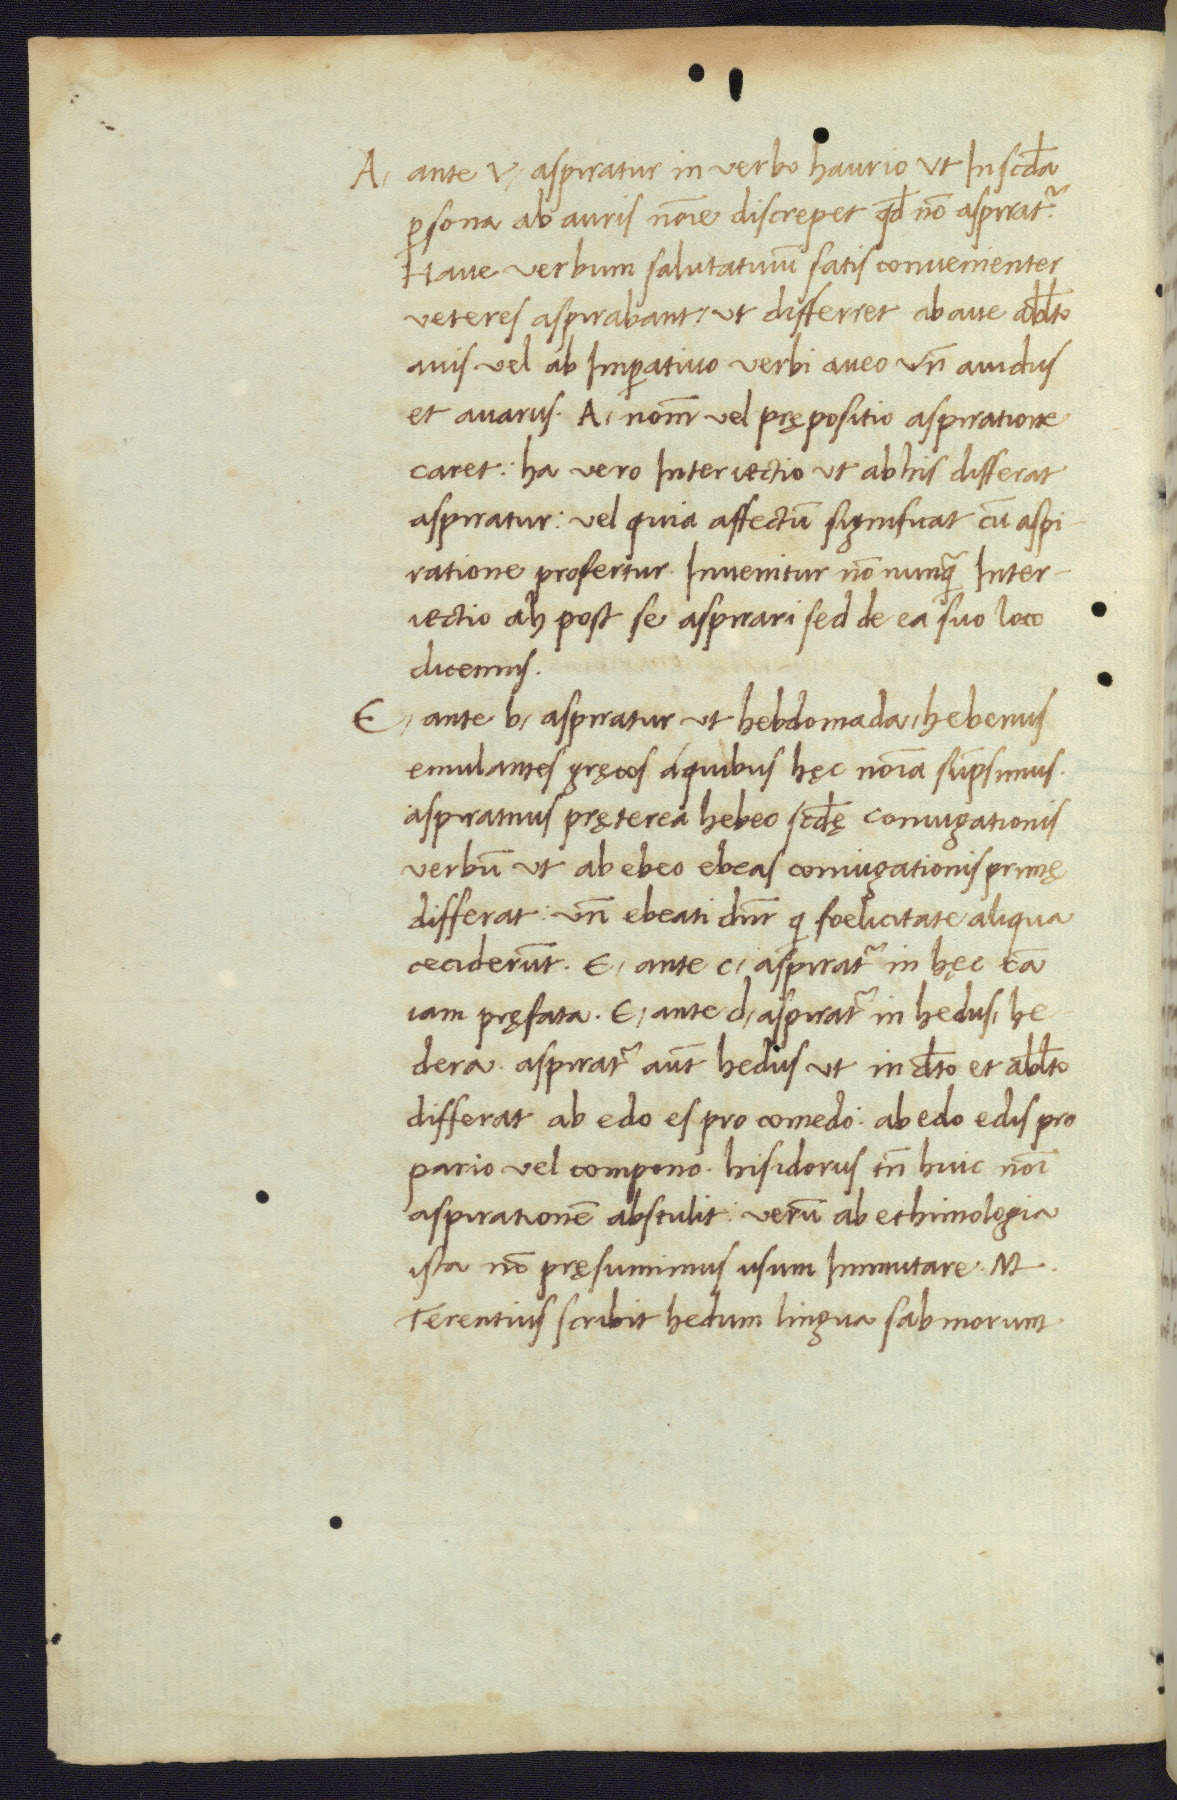 A, ante V, aspiratur in verbo haurio Vt In scd̄a
ꝑsona ab auris nōīe discrepet qđ nō aspirat᷑.
Haue verbum salutatiuū satis conuenienter
veteres aspirabant: vt differret ab aue abl̄to
auis vel ab Imꝑatiuo verbi aueo vn̄ auidus
et auarus. A, nom̄ vel prępositio aspiratione
caret: ha vero Interiectio vt ab his differat
aspiratur: vel quia affectū significat cū aspi-
ratione profertur. Inuenitur nō nunq̄ Inter-
iectio ah post se aspirari sed de ea suo loco
dicemus.
E, ante b, aspiratur vt hebdomada, hebenus
emulantes gręcos a quibus hęc nōīa sūpsimus.
aspiramus pręterea hebeo scd̄ę coniugationis
verbū vt ab ebeo ebeas coniugationis primę
differat: vn̄ ebeati dn̄r q foelicitate aliqua
ceciderūt. E, ante c, aspirat᷑ in hęc cā
iam pręfata. E, ante d, aspirat᷑ in hedus, he
dera. aspirat᷑ aūt hedus vt in dt̄o et abl̄to
differat ab edo es pro comedo: ab edo edis pro
pario vel compono. hisidorus tn̄ huic nōī
aspirationē abstulit: verū ab ethimologia
ista nō pręsumimus usum Immutare. M.
Terentius scribit hedum lingua sabinorum